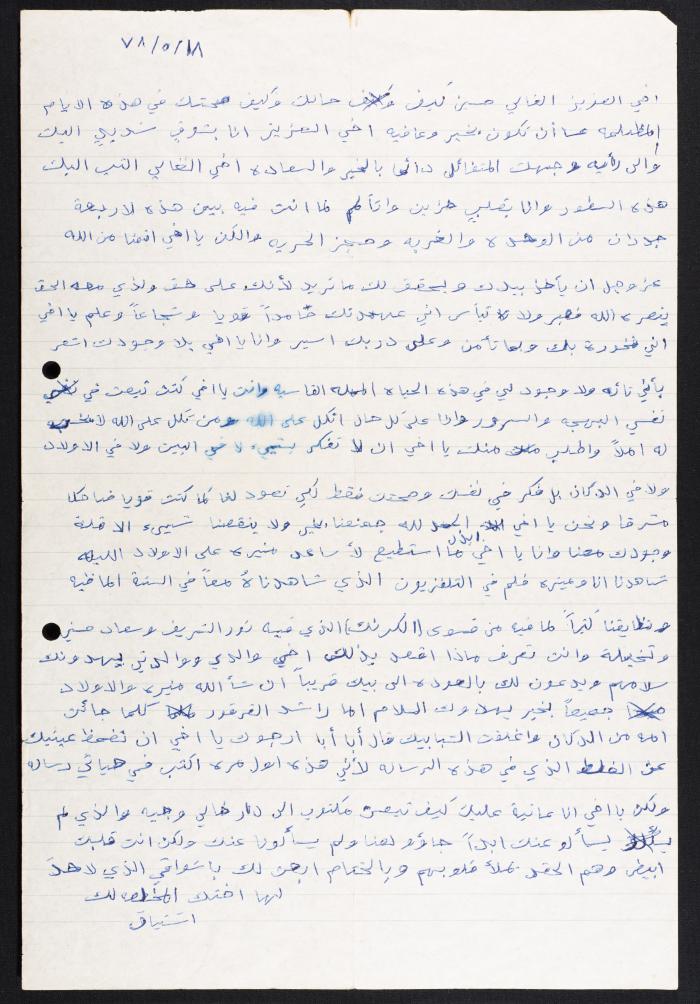 ٧٨/٥/١٨
اخي العزيز الغالي حسن كيف حالك وكيف صحتك في هذه الايام
المظلمه عسا أن تكون بخير وعافيه اخي العزيز انا بشوق شديد اليك
والى رأيه وجهك المتفائل دائما بالخير والسعاده اخي الغالي اكتب اليك
هذه السطور وانا بقلب حزين واتألم لما انت فيه بين هذه لاربعة
جدران من الوحده والغربه وحجز الحريه والكن يا اخي اتمنا من الله
عز وجل ان يأخذ بيدك ويحقق لك ما تريد لأنك على حق ولذي معه الحق
ينصره الله فصبر ولا تيأس اني عهدتك صامداً قويا وشجاعاً وعلم يا اخي
اني فخورة بك وبما تأمن وعلى دربك اسير وانا يا اخي بلا وجودك اشعر
بأني تائه ولا وجود لي في هذه الحياه الممله القاسيه وانت يا اخي كنت تبعث في
نفسي البهجه والسرور وانا على كل حال اتكل على الله ومن تكل على الله لا
له املاً واطلب منك يا اخي ان لا تفكر بشيء لا في البيت ولا في الاولاد
ولا في الدكان بل فكر في نفسك وصحتك فقط لكي تعود لنا كما كنت قويا ضاحكا
مشرقا ونحن يا اخي الحمد لله جمعنا بخير ولا ينقصنا شيىء الا قلة
وجودك معنا وانا يا اخي ما استطيع لأساعد منيره على الاولاد الليله
شاهدنا انا ومنيره فلم في التلفزيون الذي شاهدناهُ معاً في السنة الماضيه
وتضايقنا كثيراً لما فيه من قسوى (الكرنك) الذي فيه نور الشريف وسعاد حسني
وتخيله وانت تعرف ماذا اقصد بذلك اخي والدي ووالدتي يهدونك
سلامهم ويدعون لك بالعوده الى بيتك قريباً ان شأ الله منيره والاولاد
جميعاً بخير يهدوك السلام اما راشد الفرفور كلما جائت
امه من الدكان واغلقت الشبابيك قال أبا أبا ارجوك يا اخي ان تغمض عينيك
عن الغلط الذي في هذه الرساله لأني هذه اول مره اكتب في حياتي رساله
ولكن يا اخي انا عاتبة عليك كيف تبعث مكتوب الى دار خالي وجيه والذي لم
يسألو عنك ابداً جاؤو لعنا ولم يسألونا عنك ولكن انت قلبك
ابيض وهم الحقد يملأ قلوبهم وبالختام ابعث لك باشواقي الذي لا حدَّ
لها اختك المخلصه لك
اشتياق